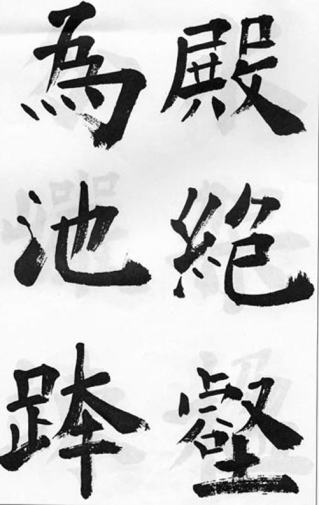 殿絶壑
為池跨